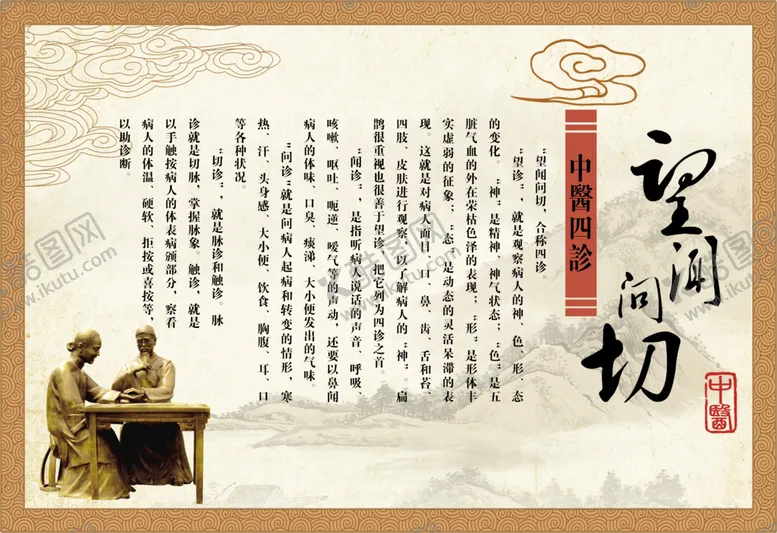 望闻问切
中醫
中醫四診
“望闻问切,合称四诊。
“望诊”,就是观察病人的神、色、形、态
的变化。“神”是精神、神气状态;“色”是五
脏气血的外在荣枯色泽的表现;“形”是形体丰
实虚弱的征象;“态”是动态的灵活呆滞的表
现。这就是对病人面目、口、鼻、齿、舌和苔、
四肢、皮肤进行观察,以了解病人的“神”。扁
鹊很重视也很善于望诊,把它列为四诊之首。
“闻诊”,是指听病人说话的声音、呼吸、
咳嗽、呕吐、呃逆、嗳气等的声动,还要以鼻闻
病人的体味、口臭、痰涕、大小便发出的气味。
“问诊”就是问病人起病和转变的情形,寒
热、汗、头身感、大小便、饮食、胸腹、耳、口
等各种状况。
“切诊”,就是脉诊和触诊。脉
诊就是切脉,掌握脉象。触诊,就是
以手触按病人的体表病颁部分,察看
病人的体温、硬软、拒按或喜按等,
以助诊断。
酷图网
www.ikutu.com